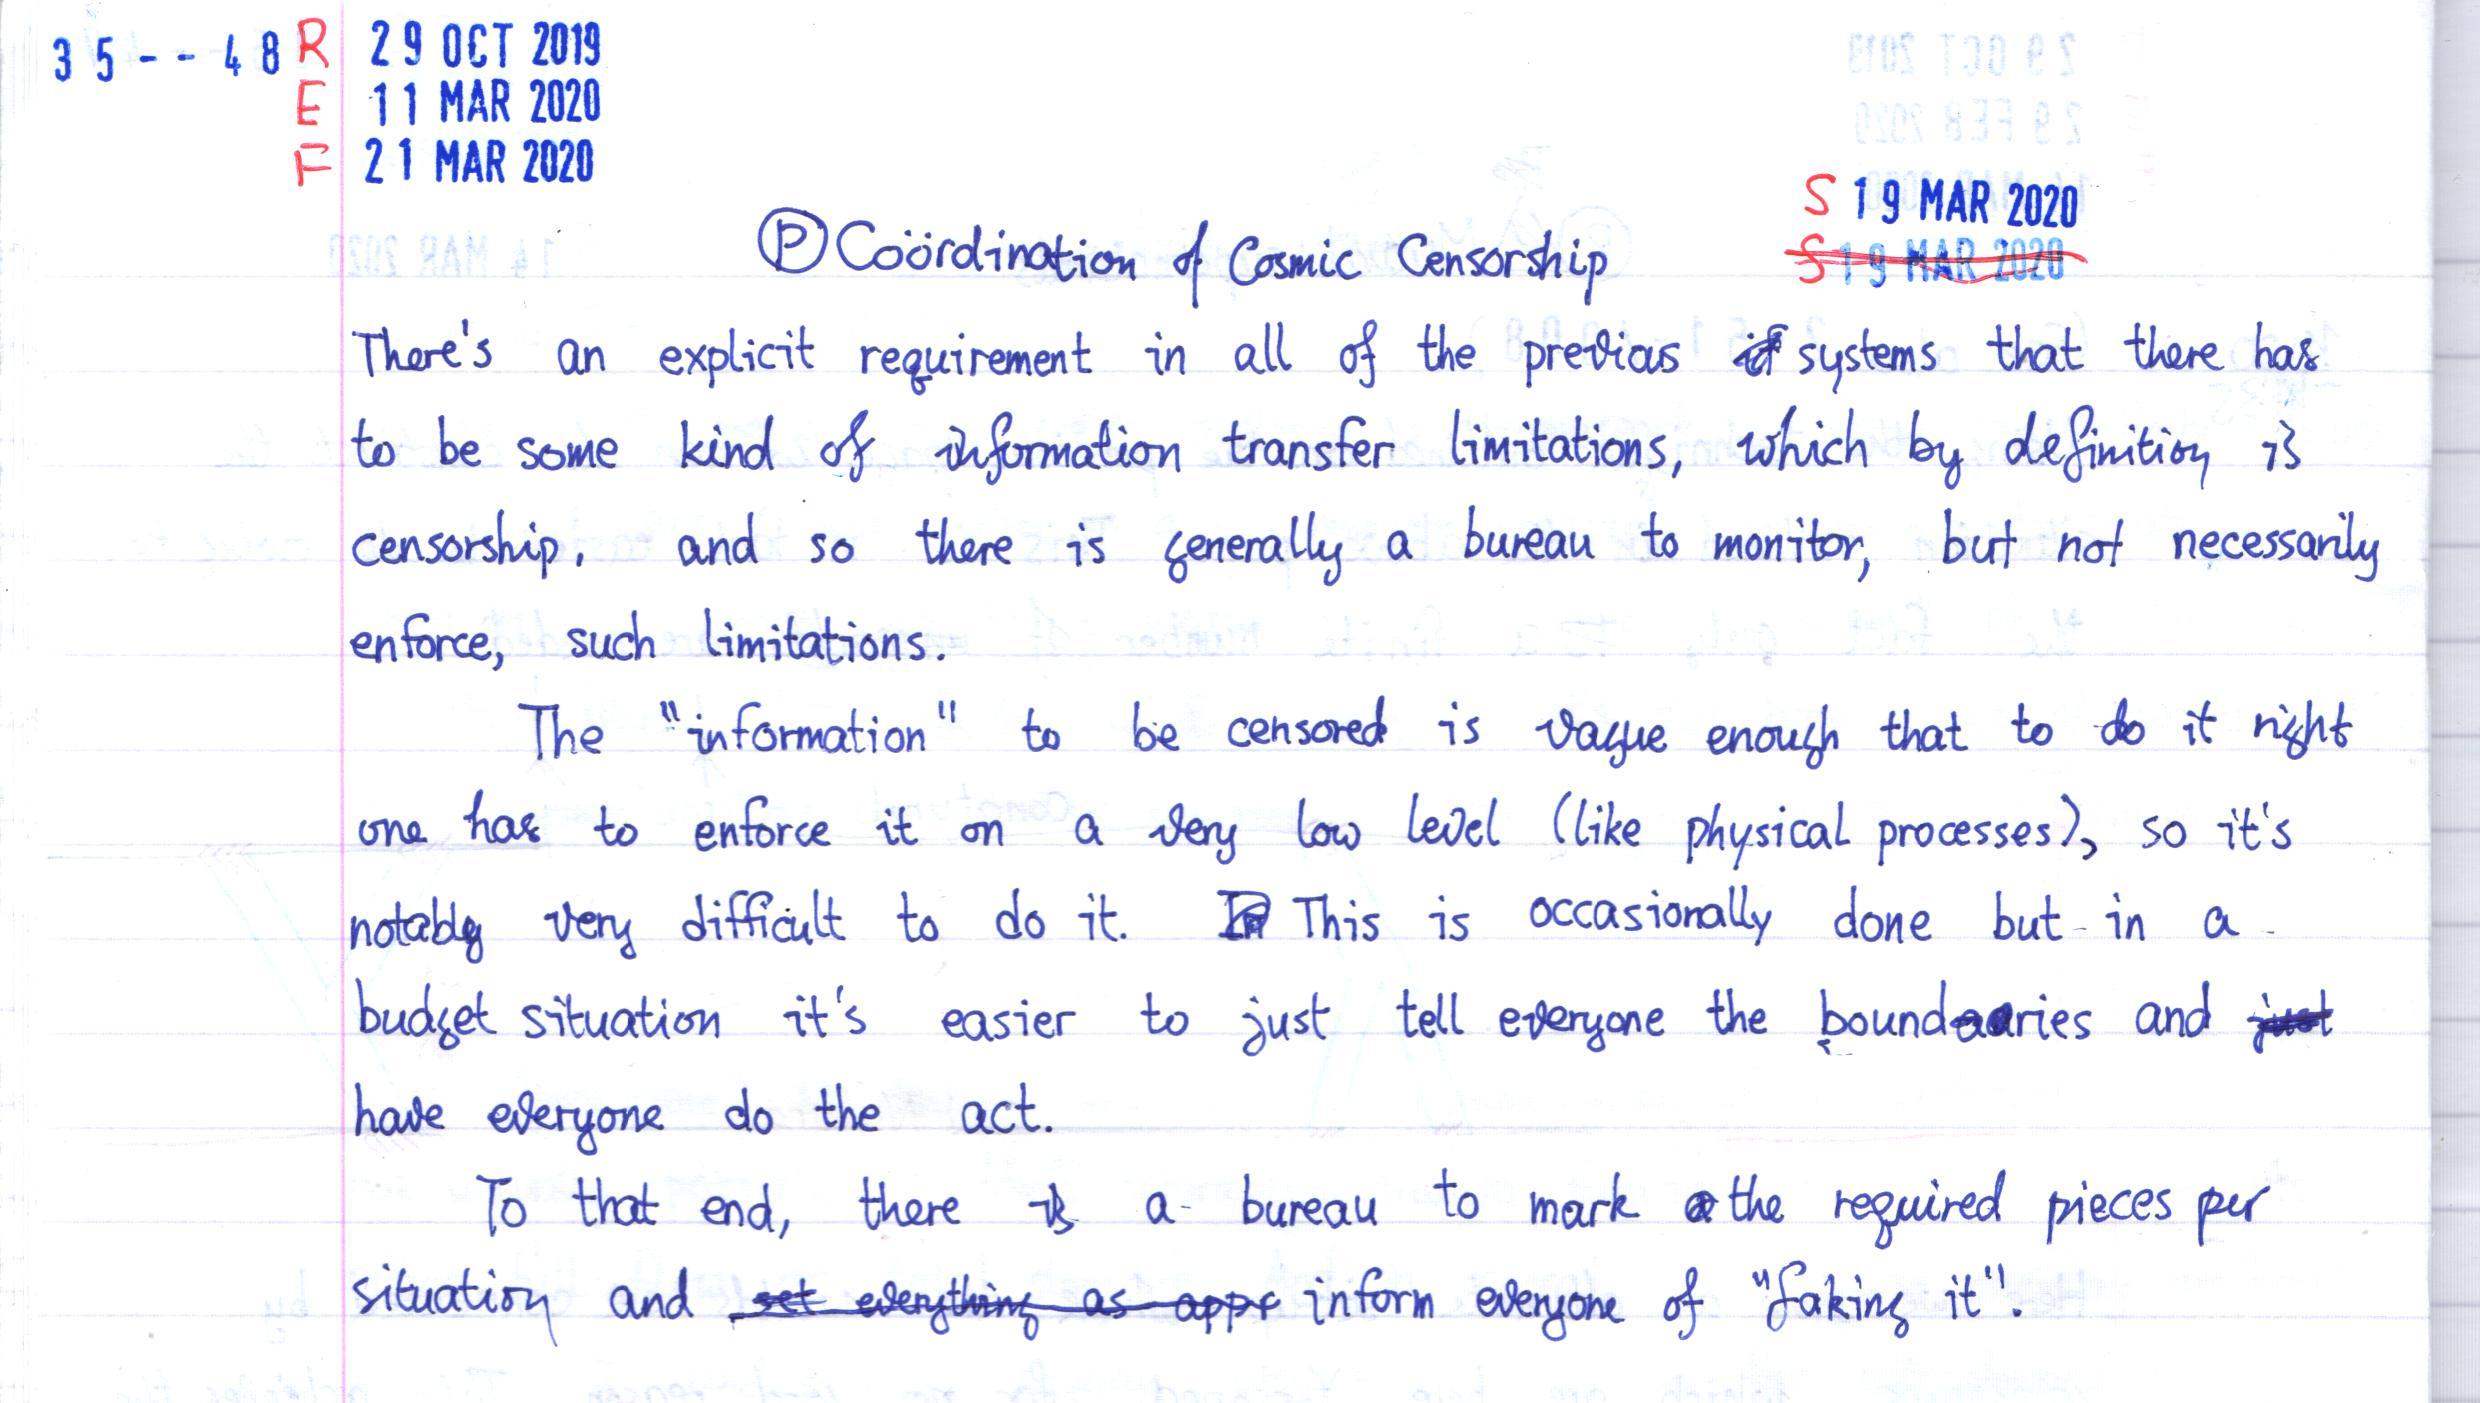 35--48 R 29 OCT 2019
E 11 MAR 2020
F 21 MAR 2020
S 19 MAR 2020
S 19 MAR 2020
Ⓟ Coördination of Cosmic Censorship
There's an explicit requirement in all of the previous systems that there has
to be some kind of information transfer limitations, which by definition is
censorship, and so there is generally a bureau to monitor, but not necessarily
enforce, such limitations.
The "information" to be censored is vague enough that to do it right
one has to enforce it on a very low level (like physical processes), so it's
notably very difficult to do it. This is occasionally done but in a
budget situation it's easier to just tell everyone the boundaries and just
have everyone do the act.
To that end, there is a bureau to mark the required pieces per
situation and set everything as appr inform everyone of "faking it".